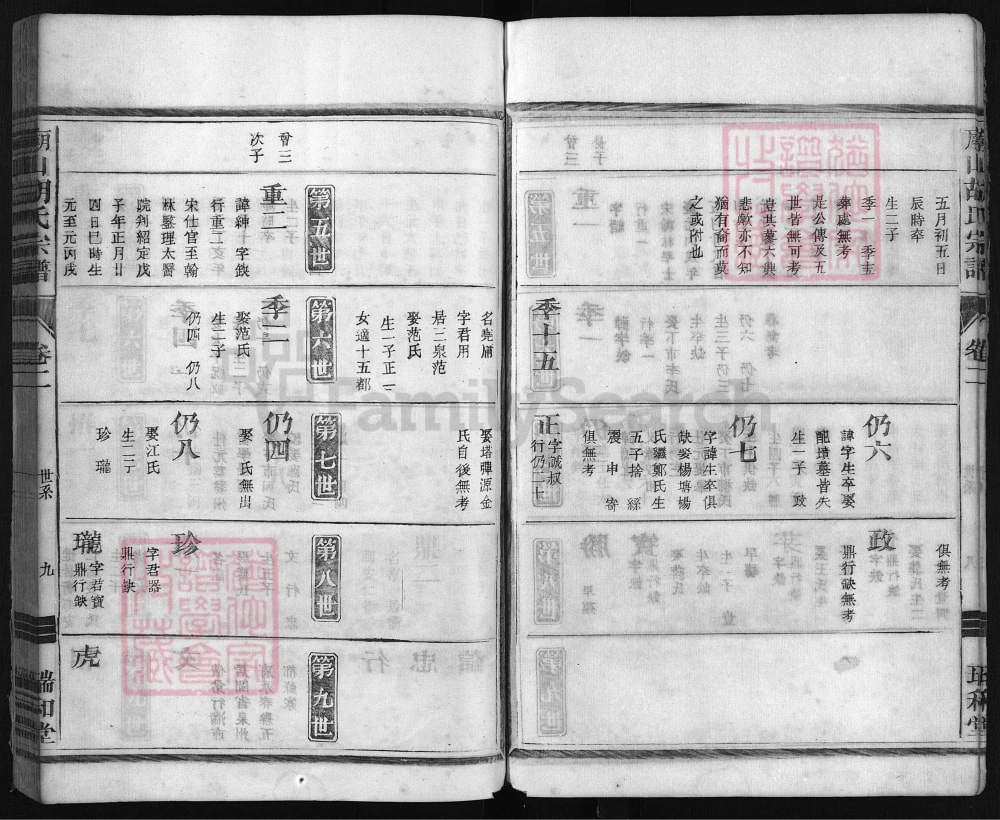 五月初五日
辰時卒
生二子
季一 季十五
葬處無考
是公傳及五
世皆無可考
豈其墓六與
悲歟亦不知
猶有裔而莫
之或附也
季十五
仍六
諱字生卒娶
配墳墓皆失
生一子 政
仍七
字諱生卒俱
缺娶楊塘楊
氏繼鄭氏生
五子 捨 繇
震 申 寄
俱無考
正字誠叔
行仍二十七
俱無考
政
鼎行缺無考
胡氏宗譜
卷二
世系
九
瑞和堂
曾三
次子
第五世
重二
諱紳十字毅
行重二
宋仕官至翰
林鑒理太醫
院判紹定戊
子年正月廿
四日巳時生
元至元丙戌
第六世
名堯庸
字君用
居三泉范
娶范氏
生一子正一
女適十五都
季二
娶范氏
生二子
仍四 仍八
第七世
娶塔彈源金
氏自後無考
仍四
娶 氏無出
仍八
娶江氏
生二子
珍 瓏
第八世
珍
字君器
鼎行缺
瓏字君寶
鼎行缺
第九世
虎
FamilySearch